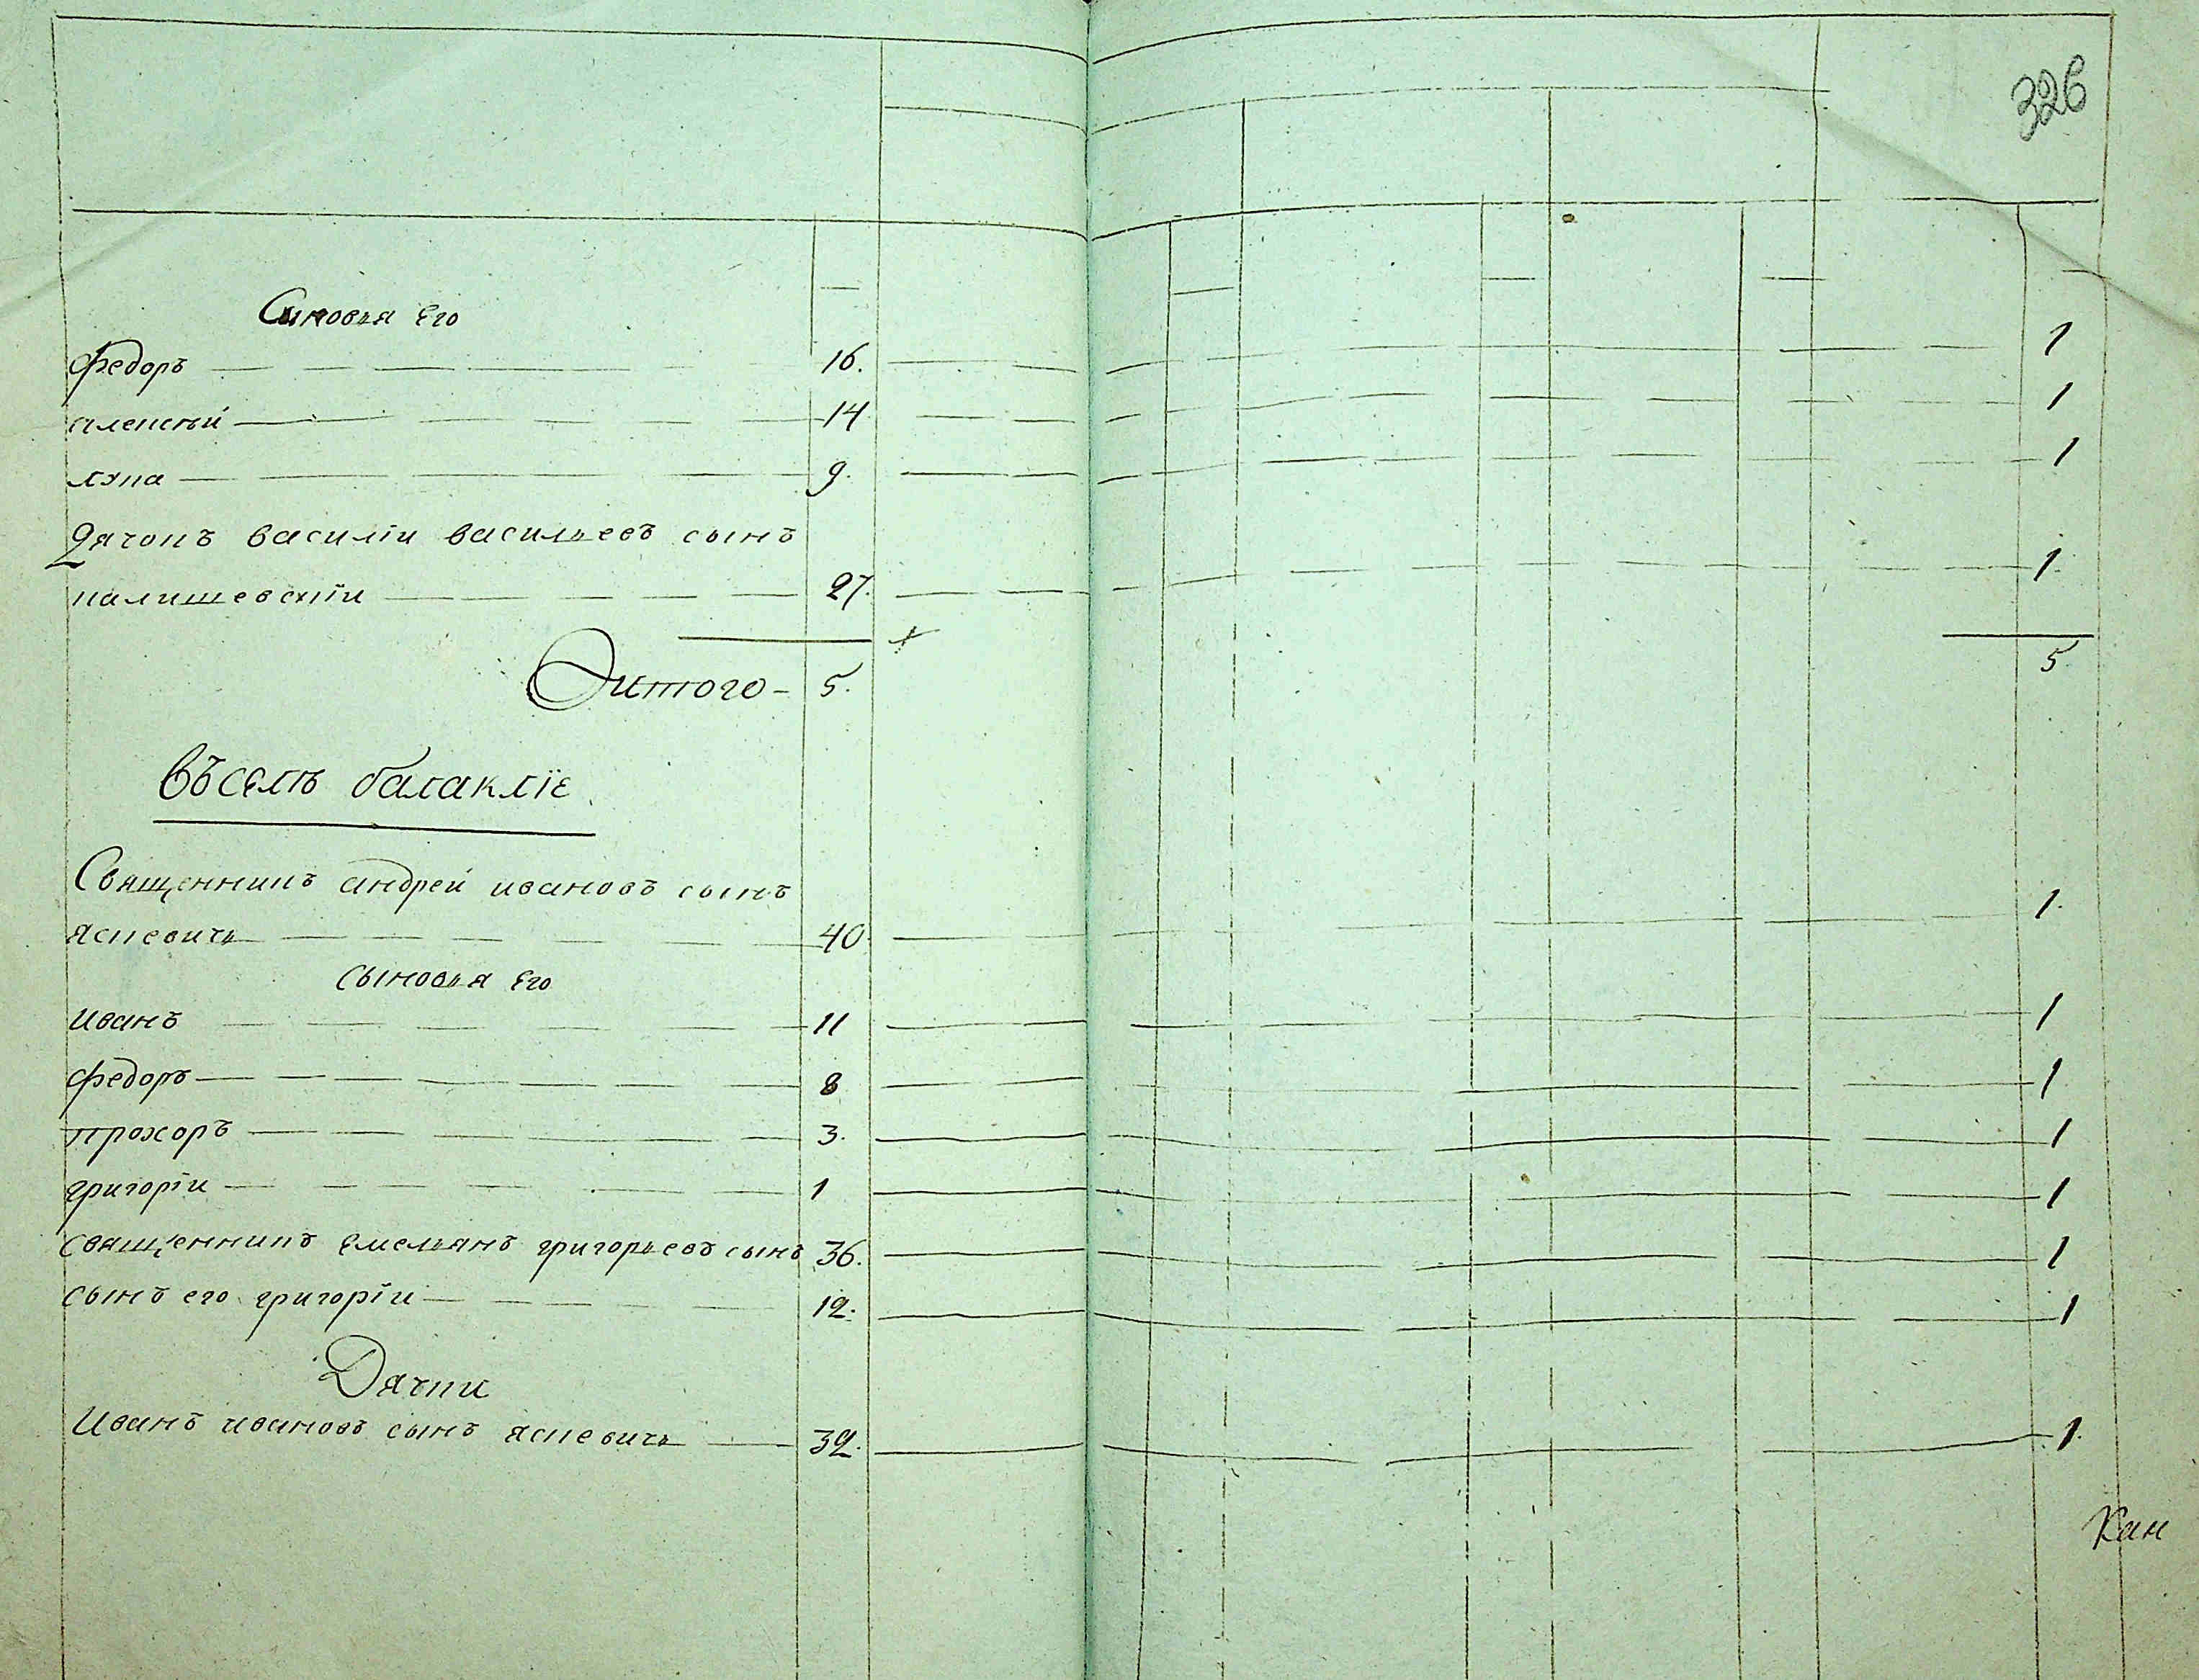 326
Сыновья Его
Федоръ 16. 1
алексѣй 14 1
лука 9. 1
Дячокъ василіи васильевъ сынъ
калишевскіи 27. 1.
Итого 5. 5
въ селѣ балакліе
Священникъ андрей ивановъ сынъ
яскевичь 40. 1.
сыновья Его
иванъ 11 1
федоръ 8 1
прохоръ 3. 1
григоріи 1 1
священникъ Емельянъ григорьевъ сынъ 36. 1
сынъ его григоріи 12. 1
Дячки
Иванъ ивановъ сынъ яскевичь 32. 1.
Кан